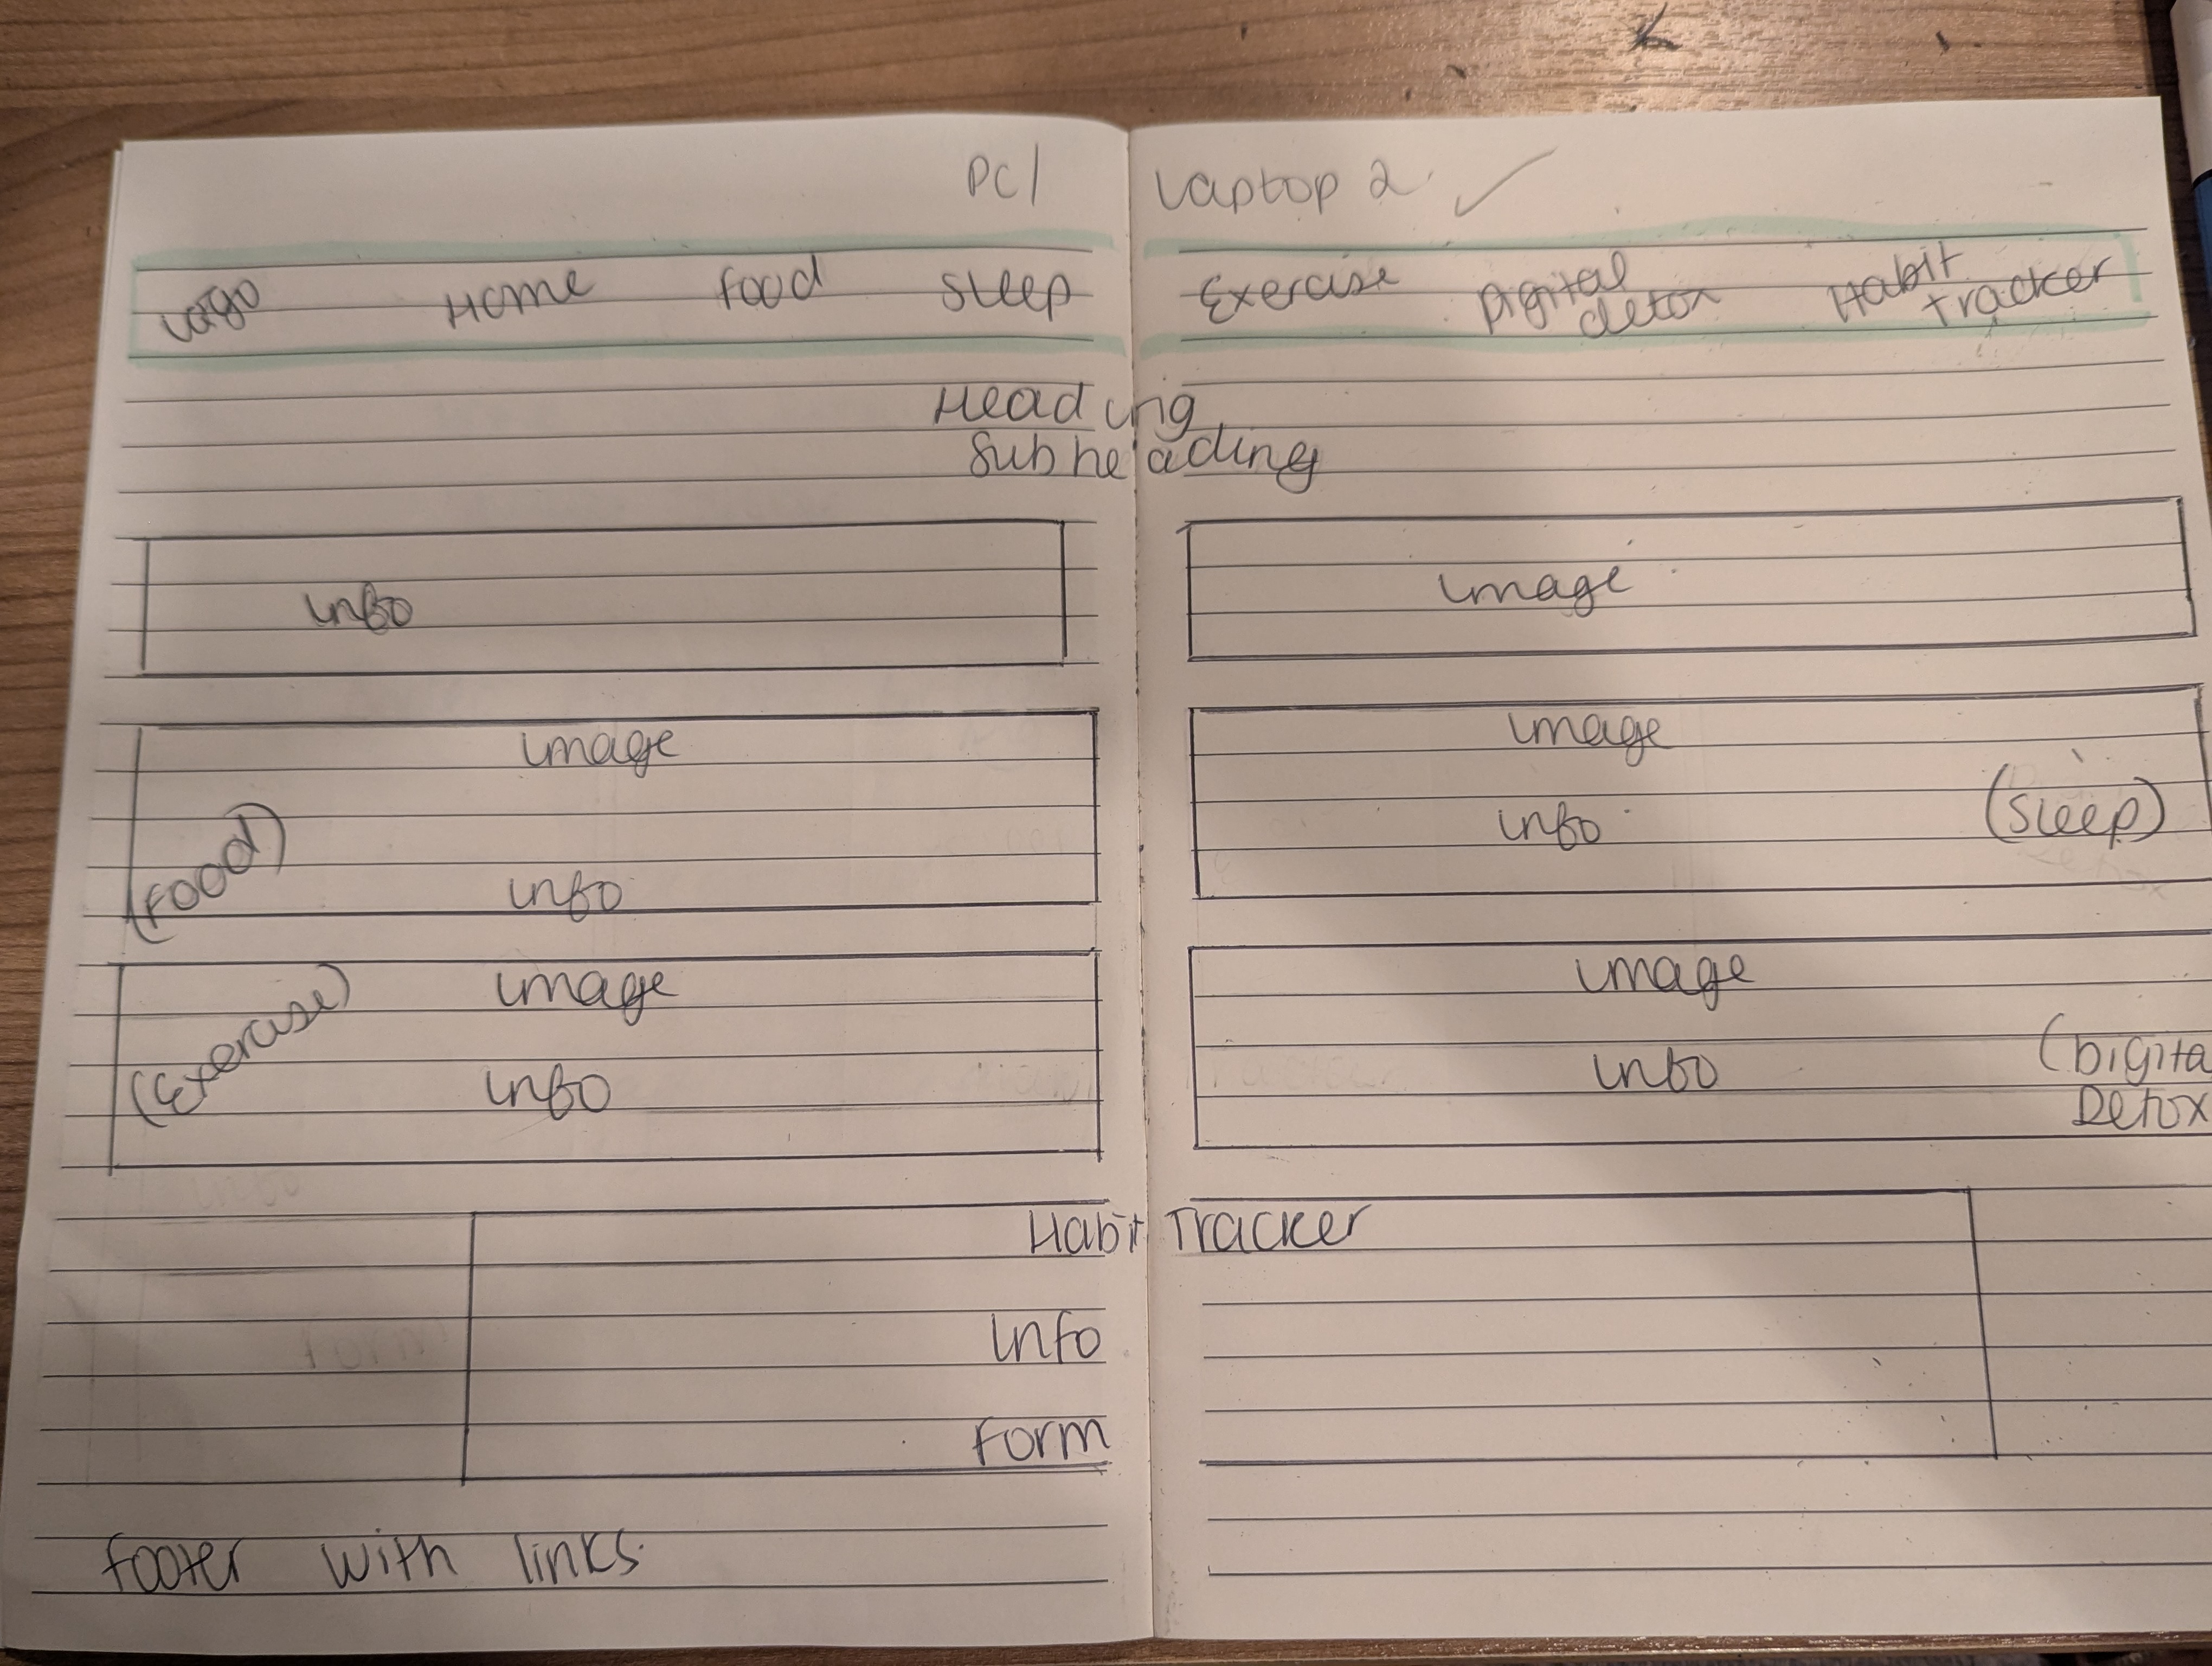 PC/ Laptop 2 ✓
Logo Home Food Sleep Exercise Digital detox Habit Tracker
Heading
Subheading
info image
image image
(Food) info info (Sleep)
image image
(Exercise) info info (Digita
Detox
Habit Tracker
Info
Form
Footer with links